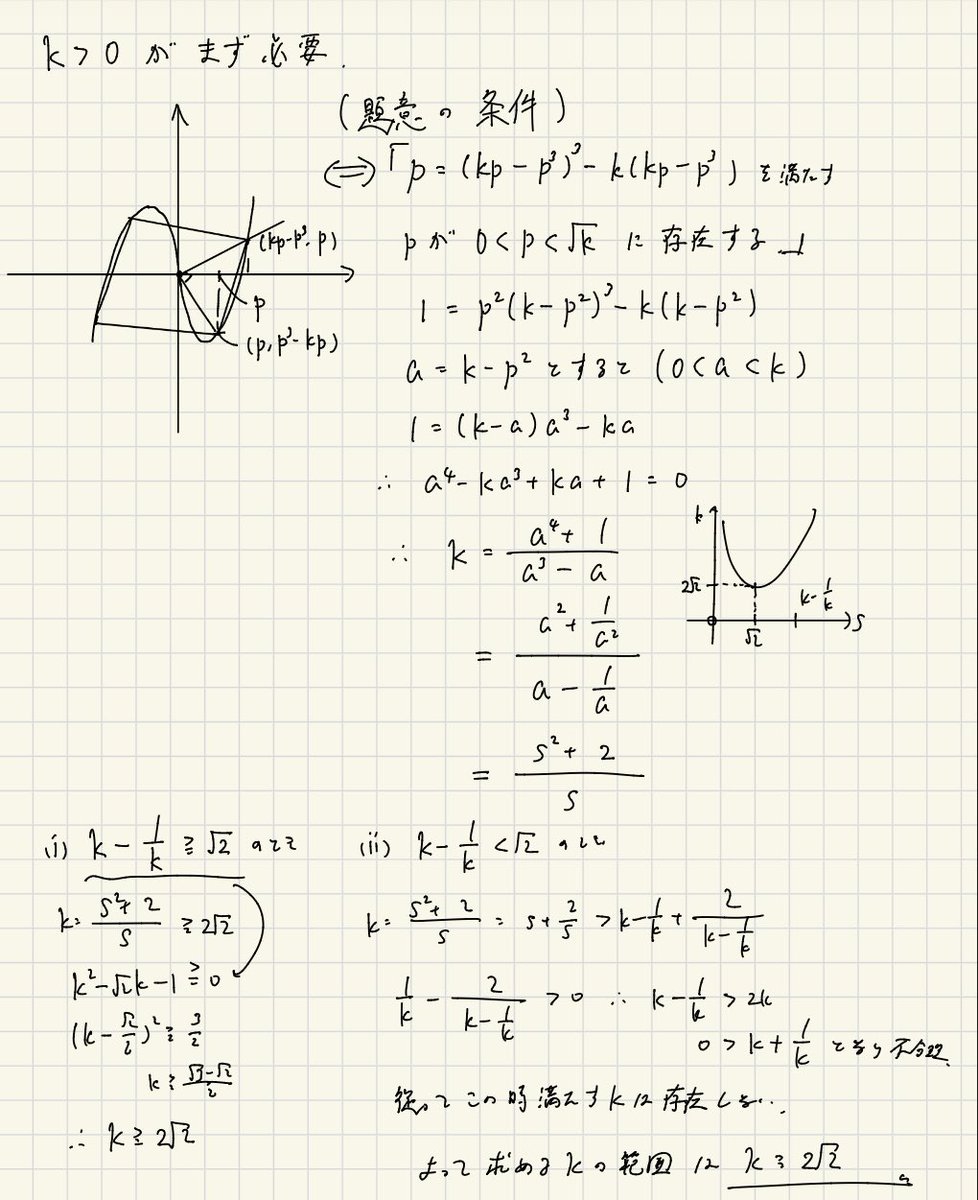 k > 0 が まず 必要.
(題意の 条件)
⇔「p = (kp - p³)³ - k(kp - p³) を満たす
(kp-p³, p)
p が 0 < p < √k に 存在する」
p
1 = p²(k - p²)³ - k(k - p²)
(p, p³-kp)
a = k - p² とすると (0 < a < k)
1 = (k-a)a³ - ka
∴ a⁴ - ka³ + ka + 1 = 0
∴ k = (a⁴ + 1)/(a³ - a)
k
2√2
√2
k - 1/k
s
= (a² + 1/a²)/(a - 1/a)
= (s² + 2)/s
(i) k - 1/k ≧ √2 のとき
k = (s² + 2)/s ≧ 2√2
k² - √2k - 1 ≧ 0
(k - √2/2)² ≧ 3/2
k ≧ (√3-√2)/2
∴ k ≧ 2√2
(ii) k - 1/k < √2 のとき
k = (s² + 2)/s = s + 2/s > k - 1/k + 2/(k - 1/k)
1/k - 2/(k - 1/k) > 0 ∴ k - 1/k > 2k
0 > k + 1/k となり不合理.
従って この時 満たす k は 存在しない.
よって 求める k の 範囲 は k ≧ 2√2